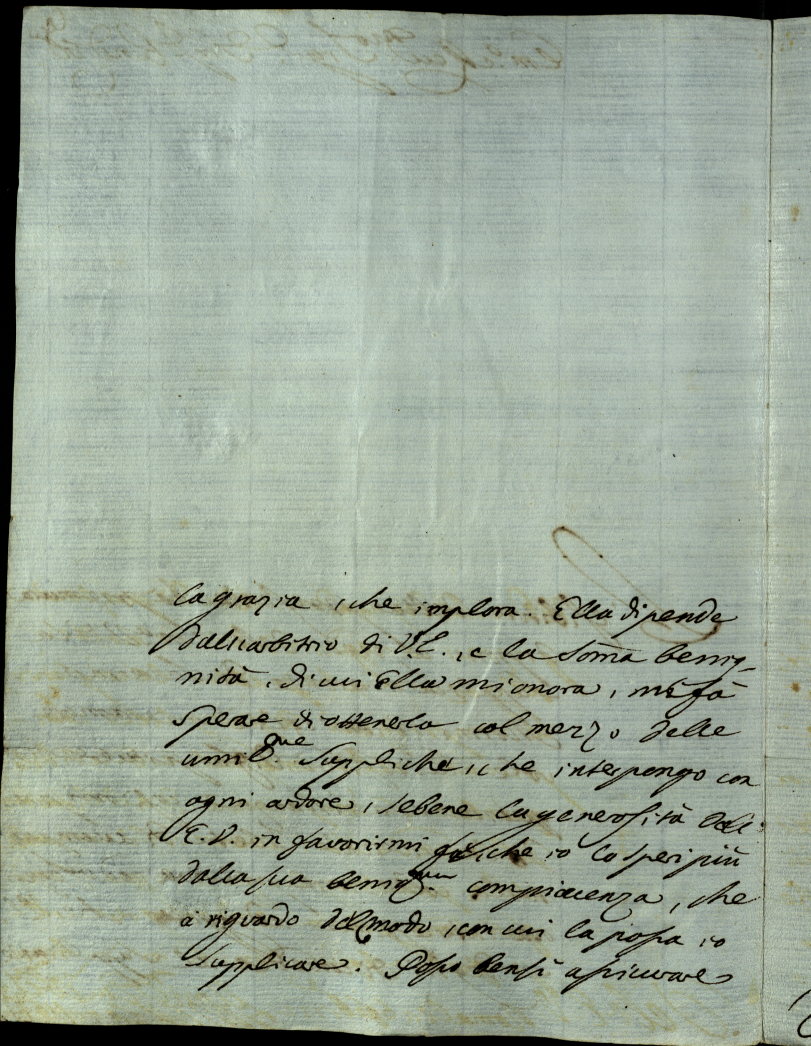 la grazia, che implora. Ella dipende
dall'arbitrio di V.E., e la som̃a benig-
nità, di cui Ella mi onora, mi fà
sperare di ottenerla col mezzo delle
umil.me suppliche, che interpongo con
ogni ardore, sebene la generosità dell'
E.V. in favorirmi fà, che io la speri più
dalla sua benig.ma compiacenza, che
à riguardo del modo, con cui la possa io
supplicare. Posso bensì assicurare